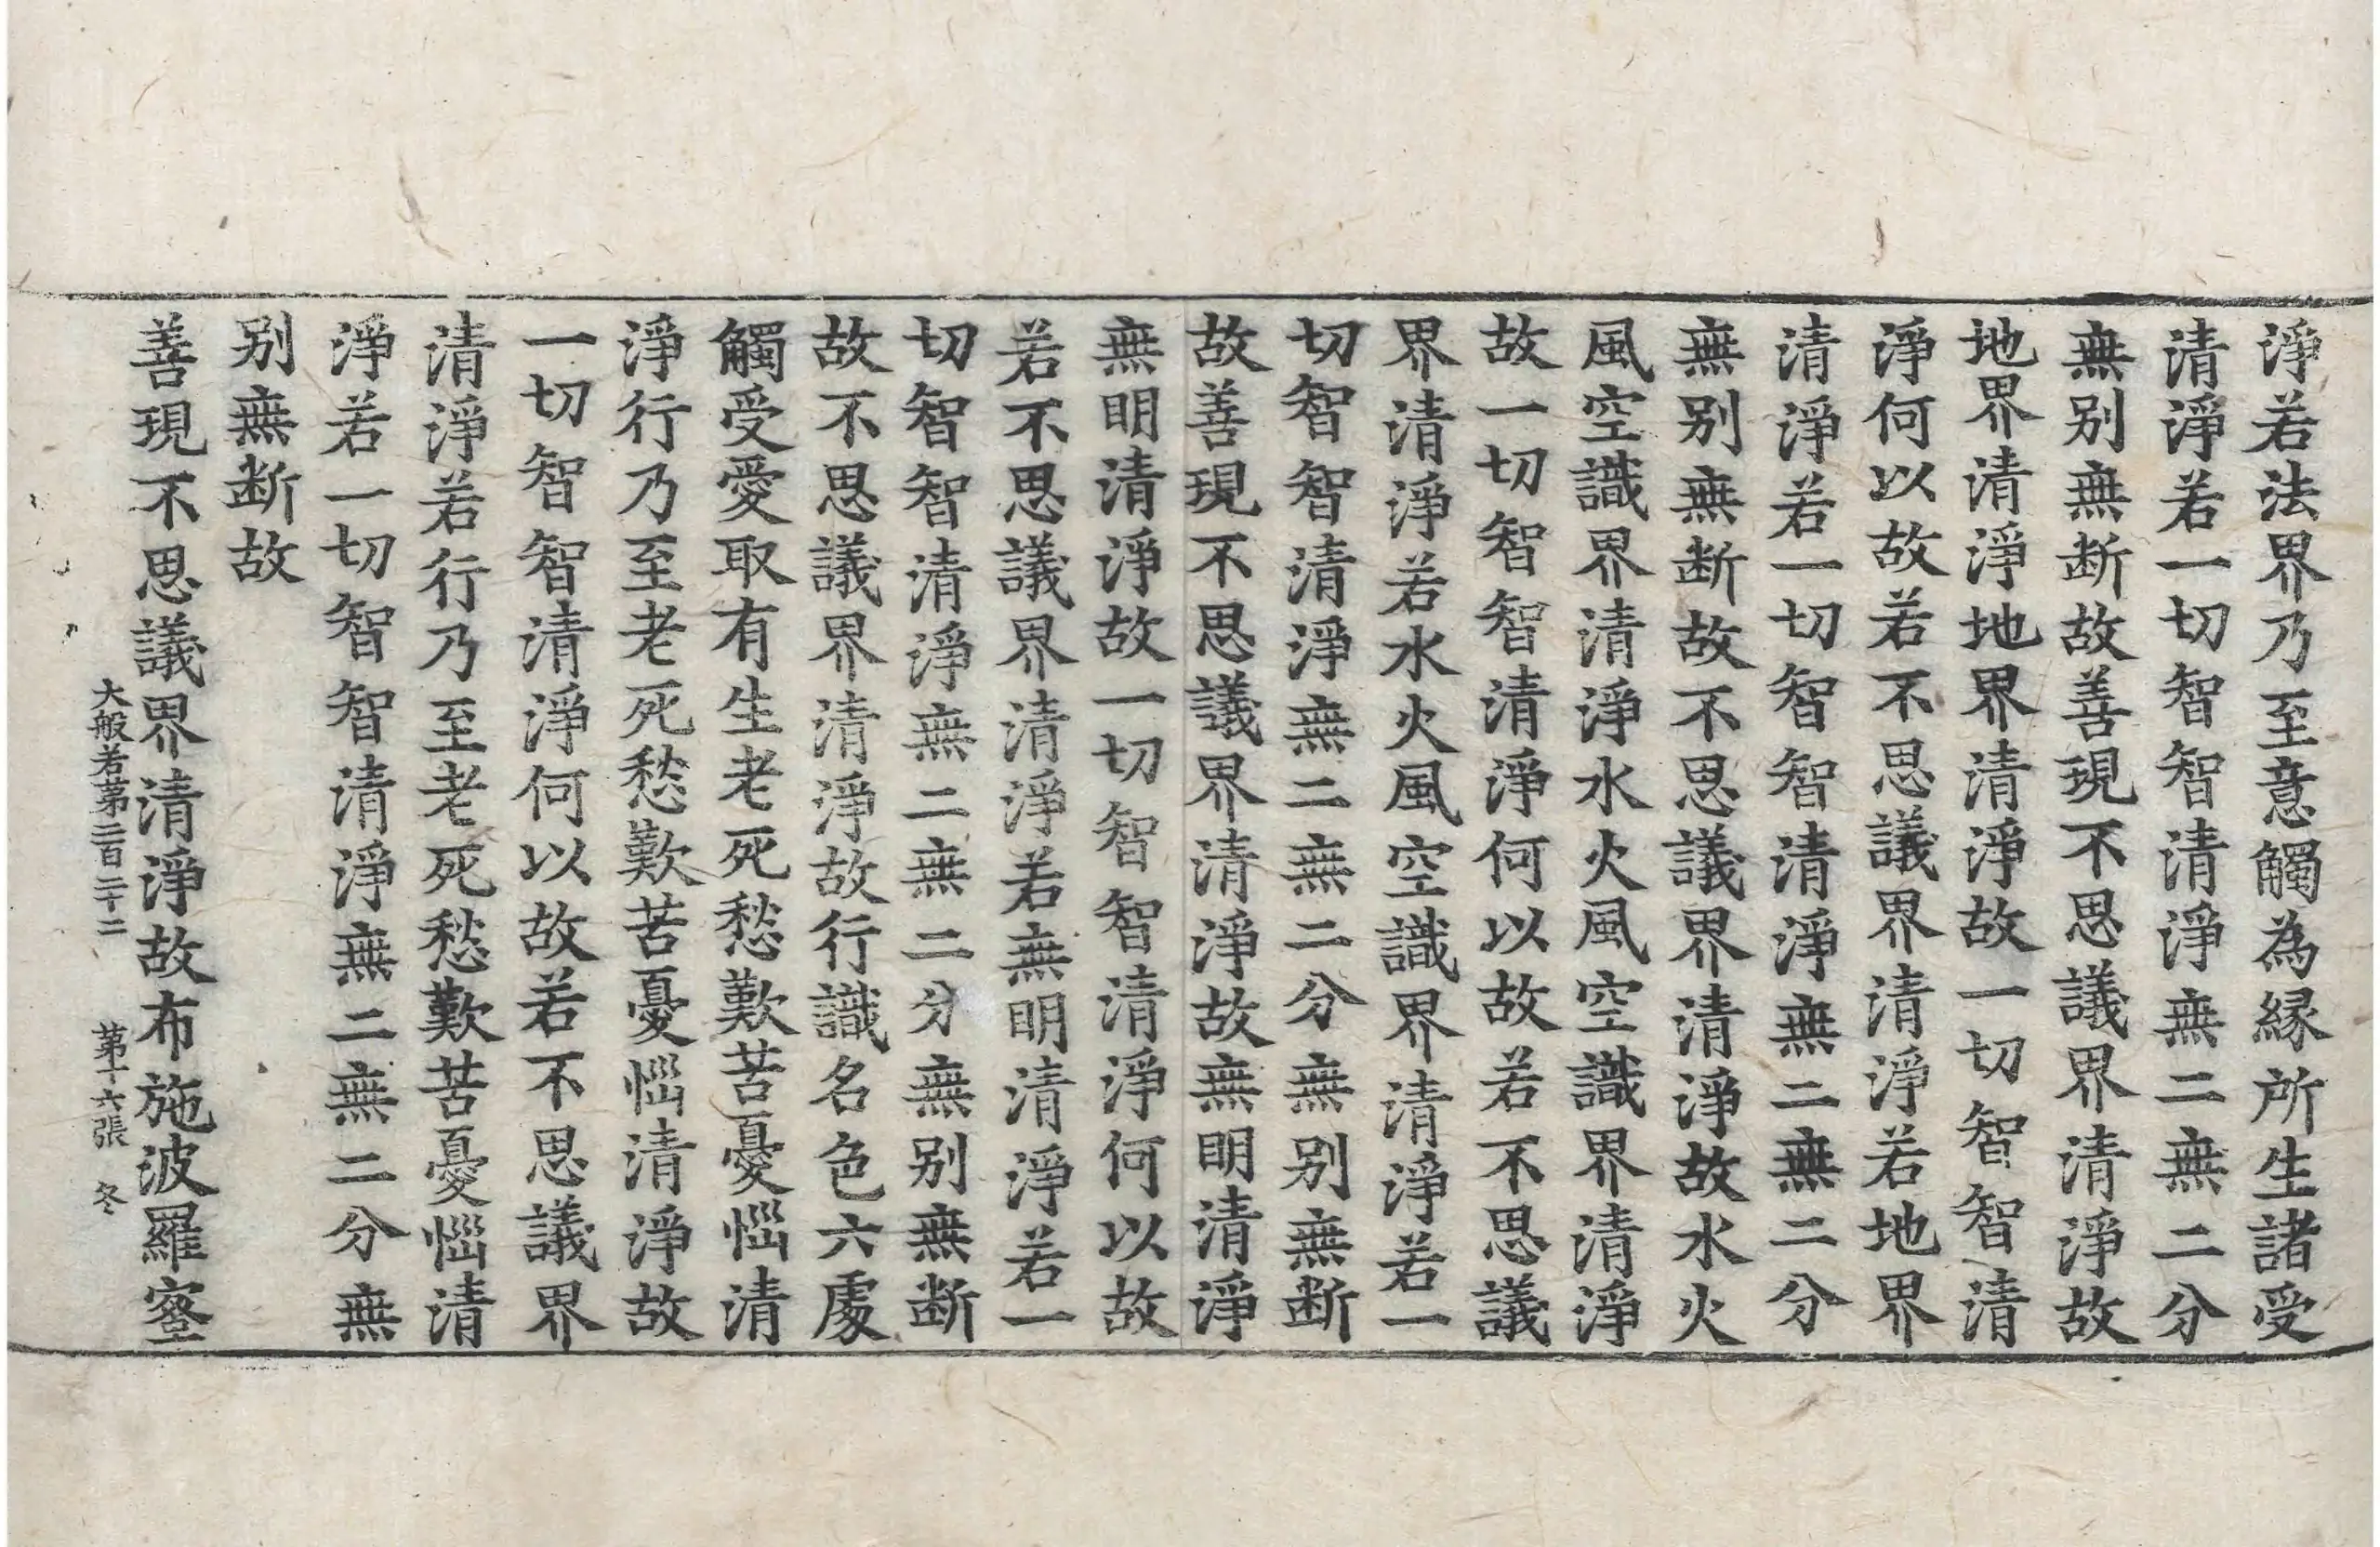 淨若法界乃至意觸為緣所生諸受
清淨若一切智智清淨無二無二分
無别無断故善現不思議界清淨故
地界清淨地界清淨故一切智智清
淨何以故若不思議界清淨若地界
清淨若一切智智清淨無二無二分
無别無断故不思議界清淨故水火
風空識界清淨水火風空識界清淨
故一切智智清淨何以故若不思議
界清淨若水火風空識界清淨若一
切智智清淨無二無二分無别無断
故善現不思議界清淨故無明清淨
無明清淨故一切智智清淨何以故
若不思議界清淨若無明清淨若一
切智智清淨無二無二分無别無断
故不思議界清淨故行識名色六處
觸受愛取有生老死愁歎苦憂惱清
淨行乃至老死愁歎苦憂惱清淨故
一切智智清淨何以故若不思議界
清淨若行乃至老死愁歎苦憂惱清
淨若一切智智清淨無二無二分無
别無断故
善現不思議界清淨故布施波羅蜜
大般若第二百二十二 第十六張 冬